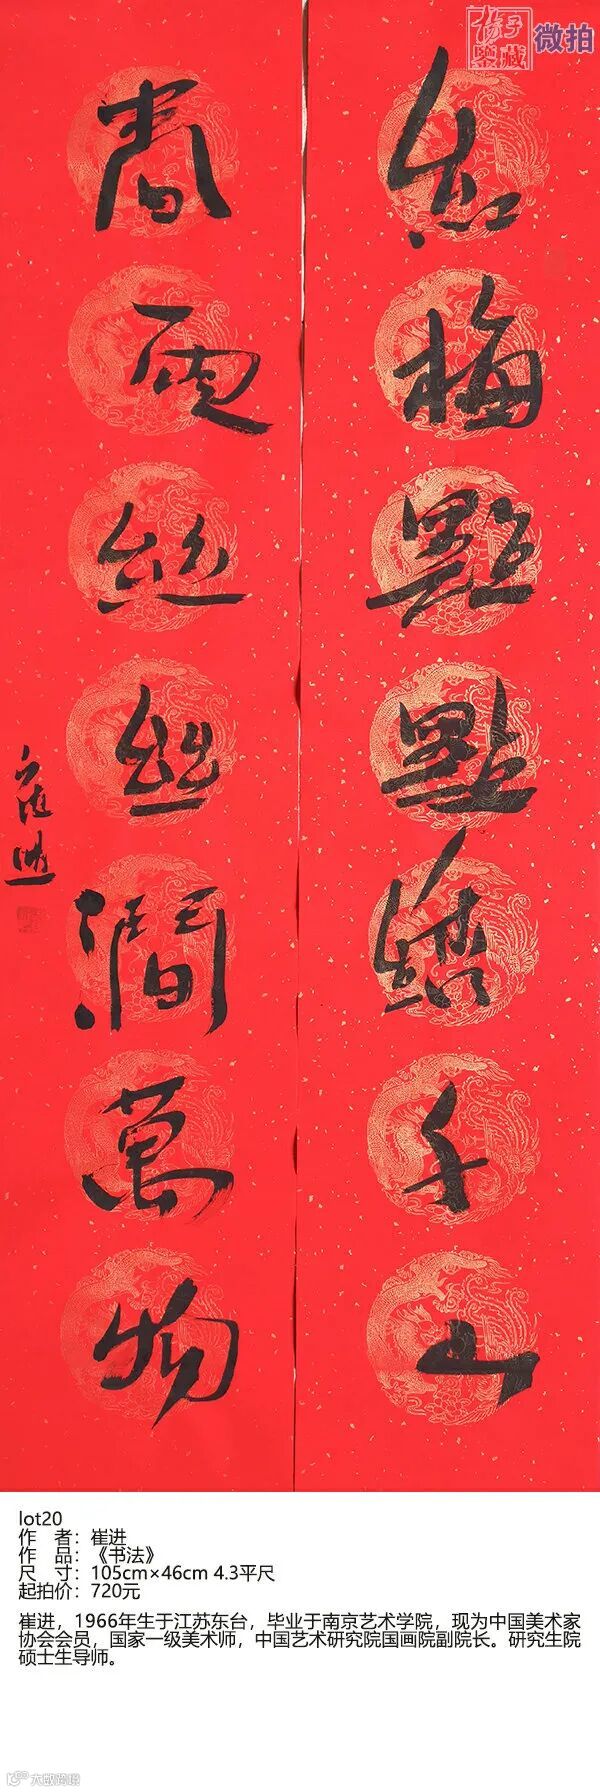 揚子
鑒藏
微拍
紅梅點點繡千山
春雨絲絲潤萬物
崔進
lot20
作 者：崔进
作 品：《书法》
尺 寸：105cm×46cm 4.3平尺
起拍价：720元
崔进，1966年生于江苏东台，毕业于南京艺术学院，现为中国美术家
协会会员，国家一级美术师，中国艺术研究院国画院副院长。研究生院
硕士生导师。
大数跨境